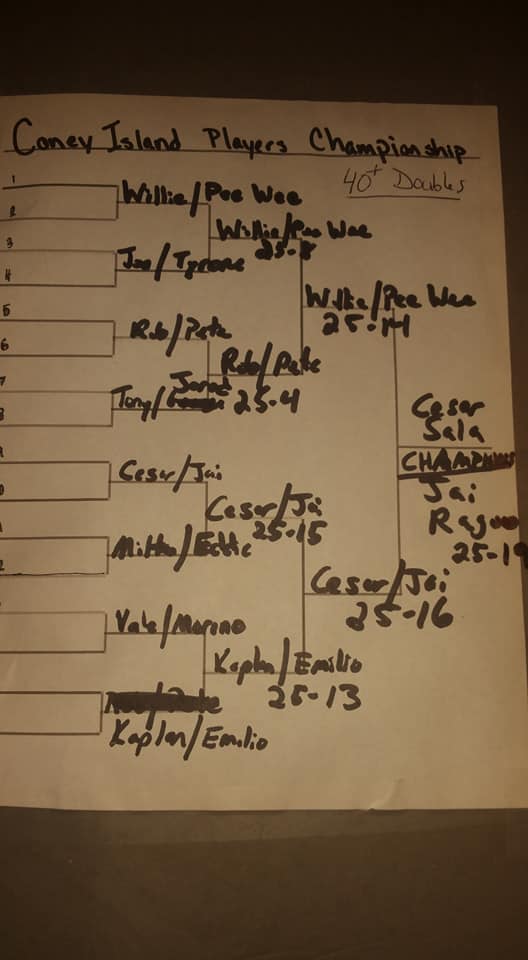 Coney Island Players Championship
40+ Doubles
1
2
3
4
5
6
7
Willie/Pee Wee
Willie/Pee Wee
25-8
Joe/Tyrone
Willie/Pee Wee
25-14
Rob/Pete
Rob/Pete
25-4
Jarad
Tony/
Cesar
Sala
CHAMPIONS
Jai
25-19
Cesar/Jai
Cesar/Jai
25-15
/Eddie
Cesar/Jai
25-16
Vale/Marino
Kaplan/Emilio
25-13
Kaplan/Emilio